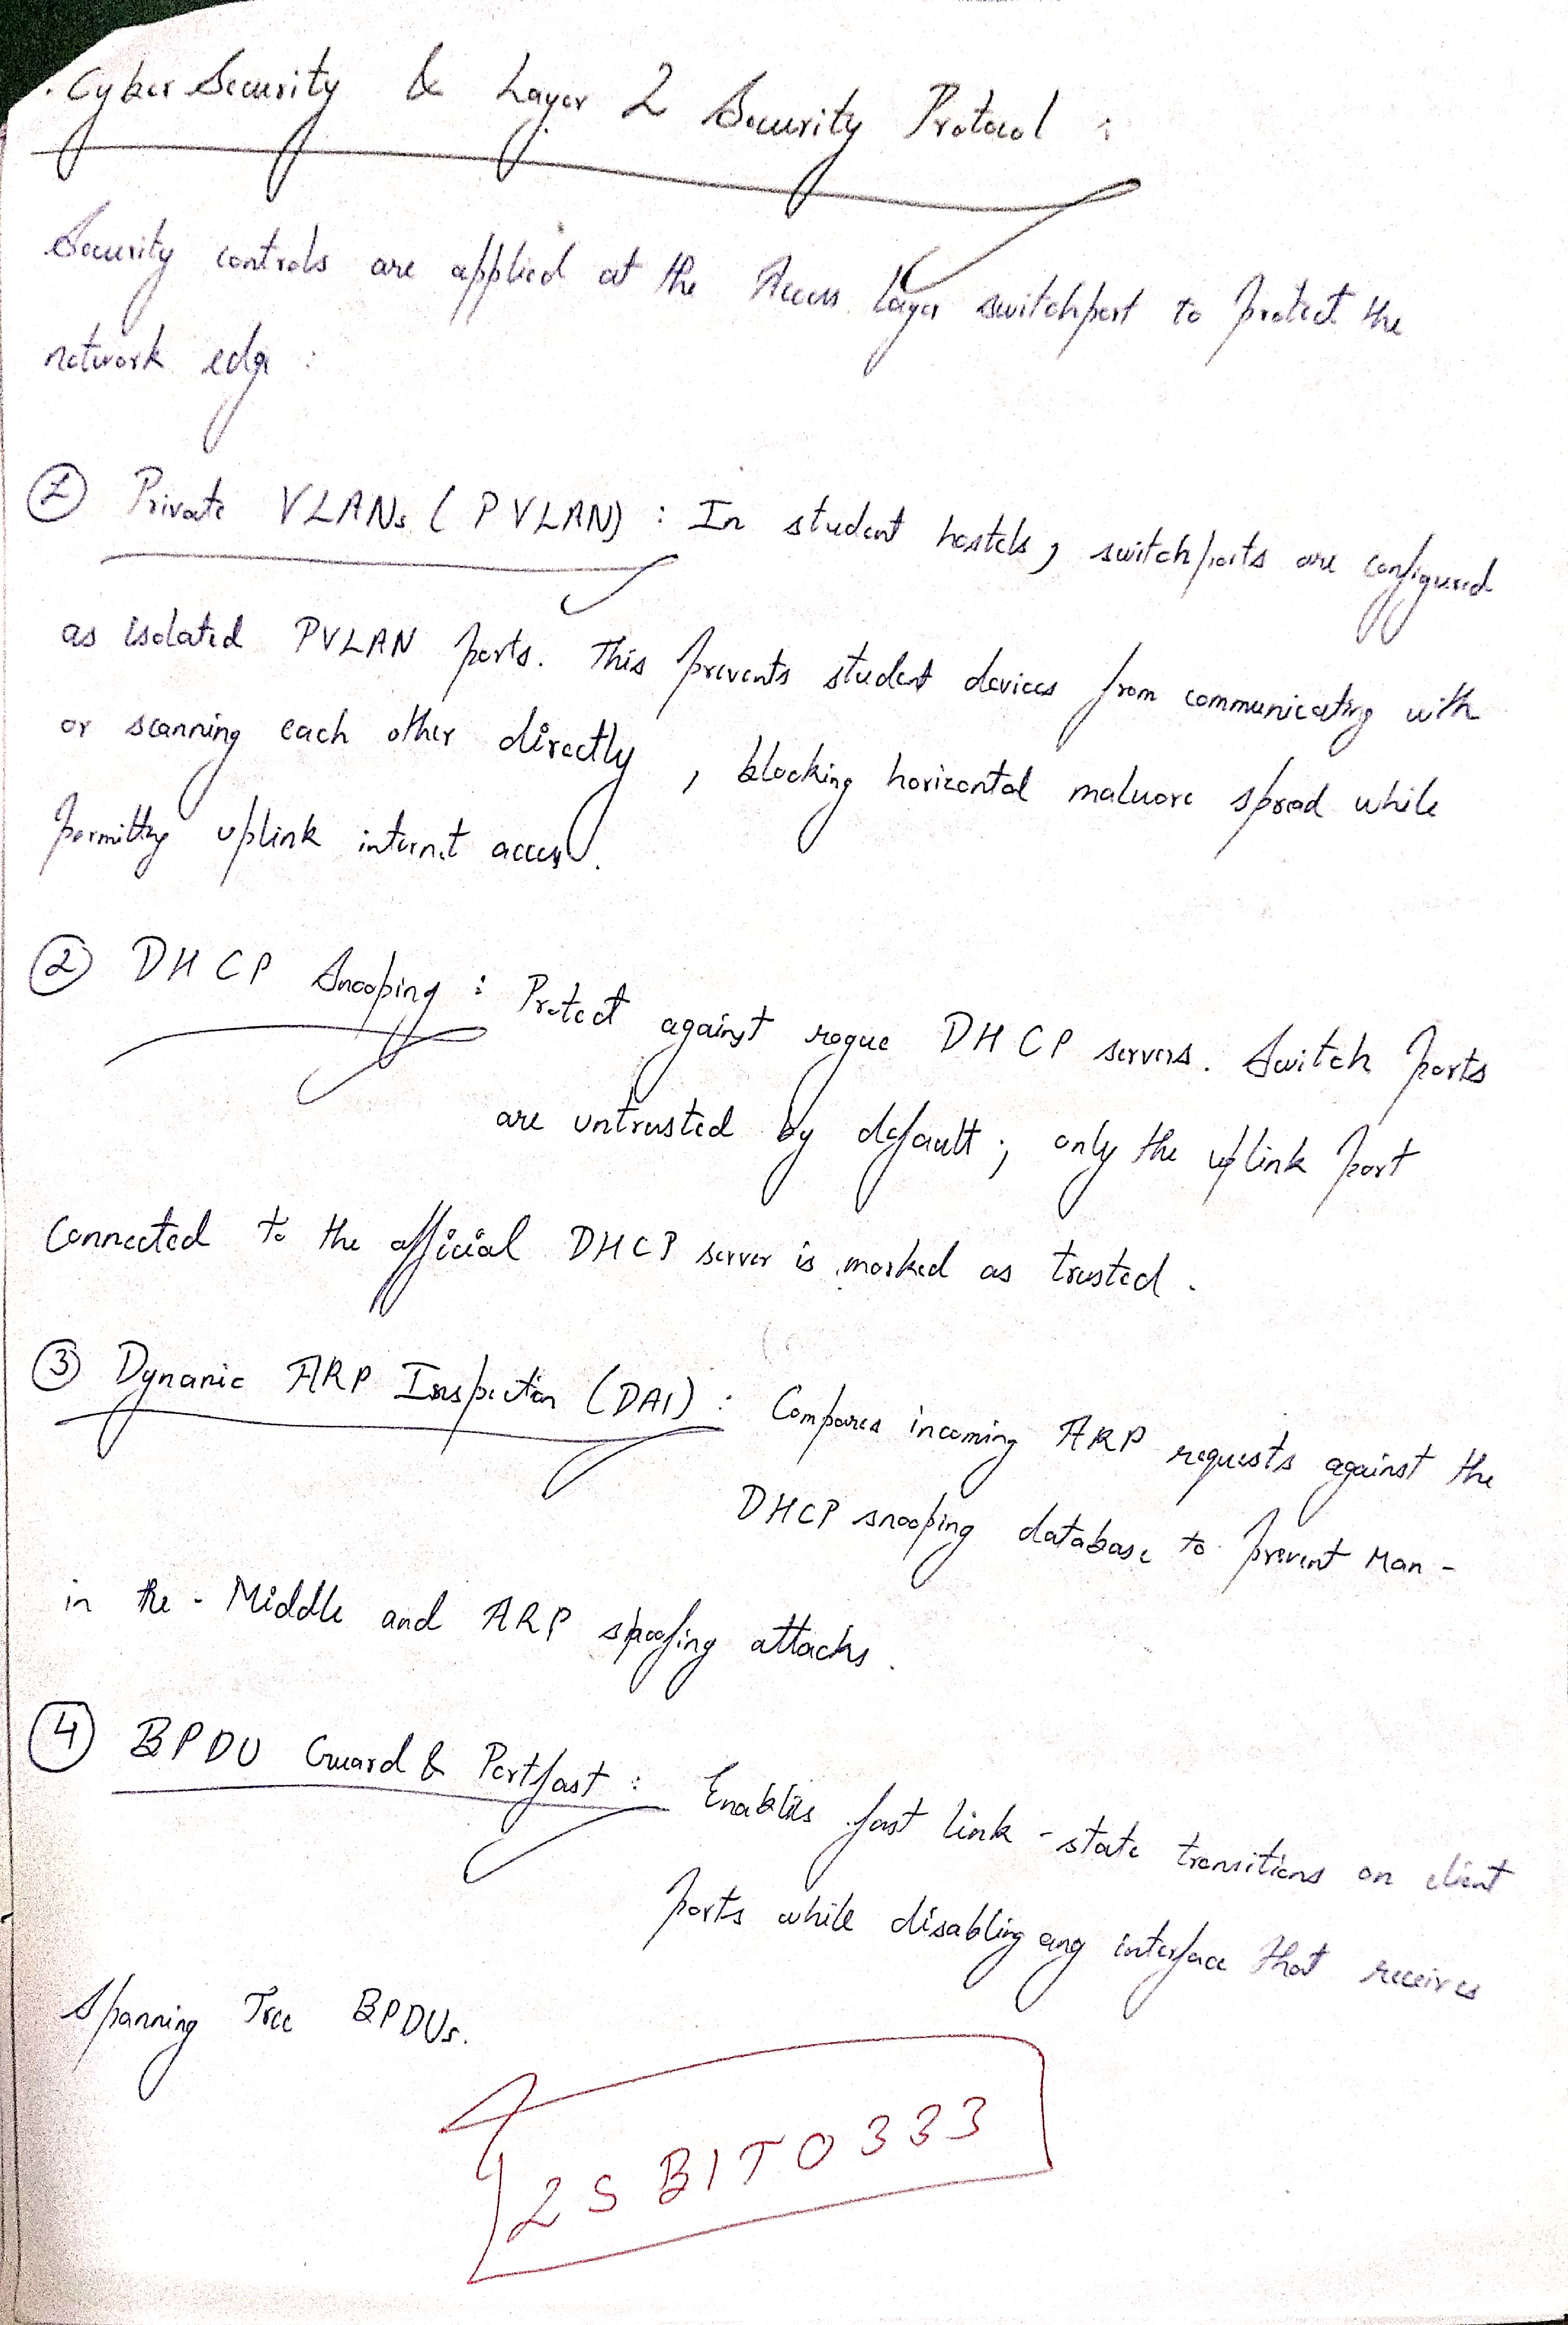 . Cyber Security & Layer 2 Security Protocol :
Security controls are applied at the Access Layer switchport to protect the
network edge :
① Private VLANs ( PVLAN) : In student hostels, switchports are configured
as isolated PVLAN ports. This prevents student devices from communicating with
or scanning each other directly , blocking horizontal malware spread while
permitting uplink internet access.
② DHCP Snooping : Protect against rogue DHCP servers. Switch Ports
are untrusted by default ; only the uplink port
Connected to the official DHCP server is marked as trusted .
③ Dynamic ARP Inspection (DAI) : Compares incoming ARP requests against the
DHCP snooping database to prevent Man -
in the - Middle and ARP spoofing attacks .
④ BPDU Guard & Portfast : Enables fast link - state transitions on client
ports while disabling any interface that receives
Spanning Tree BPDUs.
25BIT0333